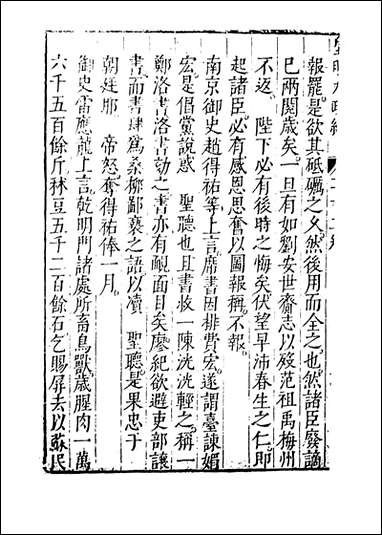 報罷。是欲其砥礪之乂。然後用而全之也。然諸臣廢謫
已兩閱歲矣。一旦有如劉安世齋志以歿。范祖禹梅州
不返。 陛下必有後時之悔矣。伏望早沛春生之仁。即
起諸臣。必有感恩思奮以圖報稱。不報。
南京御史趙得祐等上言。席書因排費宏。遂謂臺諫媚
宏。是倡黨說惑 聖聽也。且書收一陳洸。洸輕之。稱一
鄭洛書。洛書劾之。書亦有靦面目矣。麼紀欲避吏部讓
書。而書肆為桑柳鄙褻之語。以瀆 聖聽。是果忠于
朝廷耶 帝怒。奪得祐俸一月。
御史雷應龍上言。乾明門諸處所畜鳥獸。歲腥肉一萬
六千五百餘斤。秫豆五千二百餘石。乞賜屏去。以蘇民